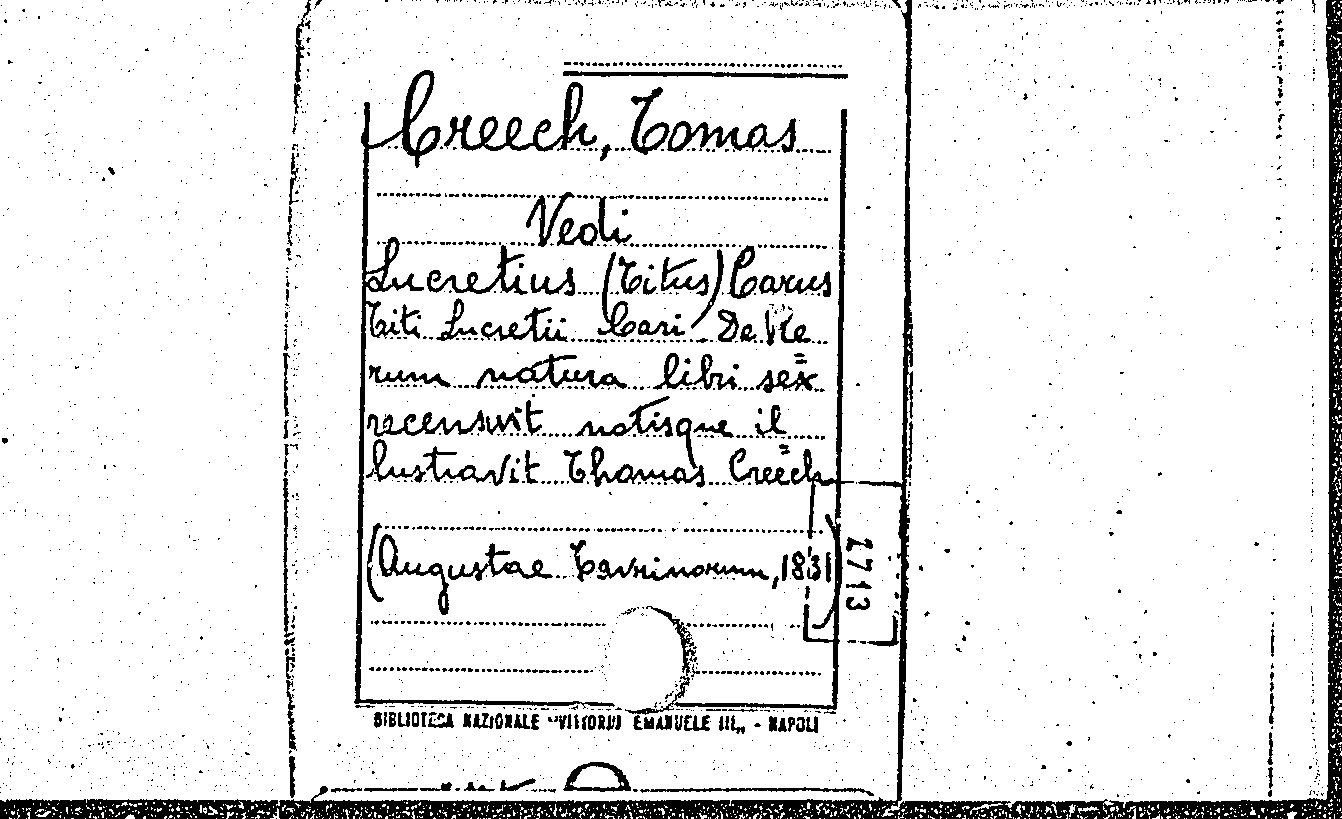 Creech, Tomas
Vedi
Lucretius (Titus) Carus
Titi Lucretii Cari De Re
rum natura libri sex
recensuit notisque il
lustravit Thomas Creech
(Augustae Taurinorum, 1831)
7713
BIBLIOTECA NAZIONALE "VITTORIO EMANUELE III„ - NAPOLI